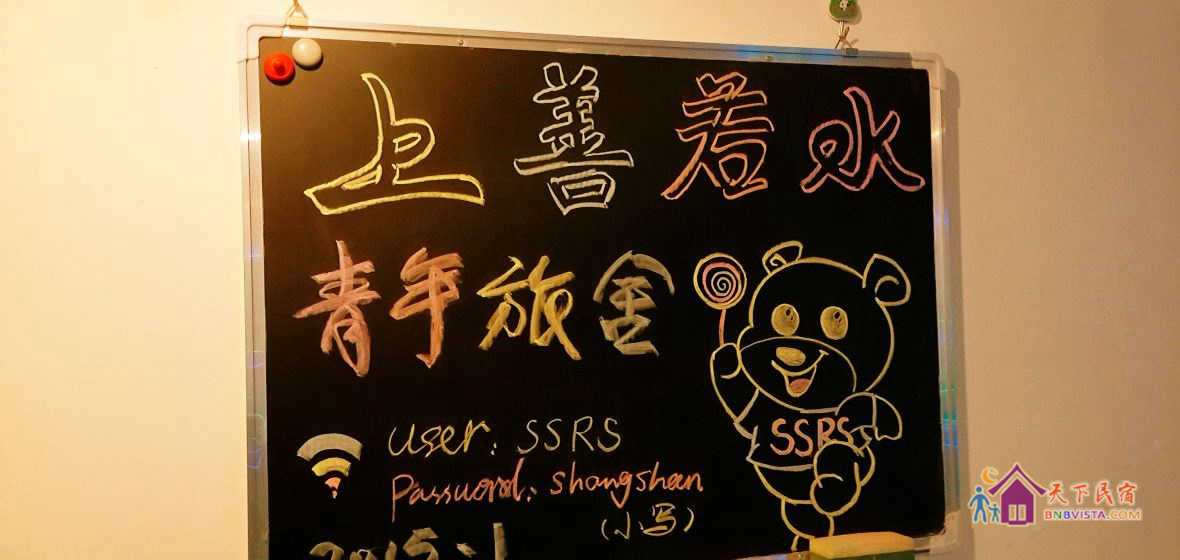 上善若水
青年旅舍
user: SSRS
Password: shangshan
(小写)
2015.1
SSRS
天下民宿
BNBVISTA.COM